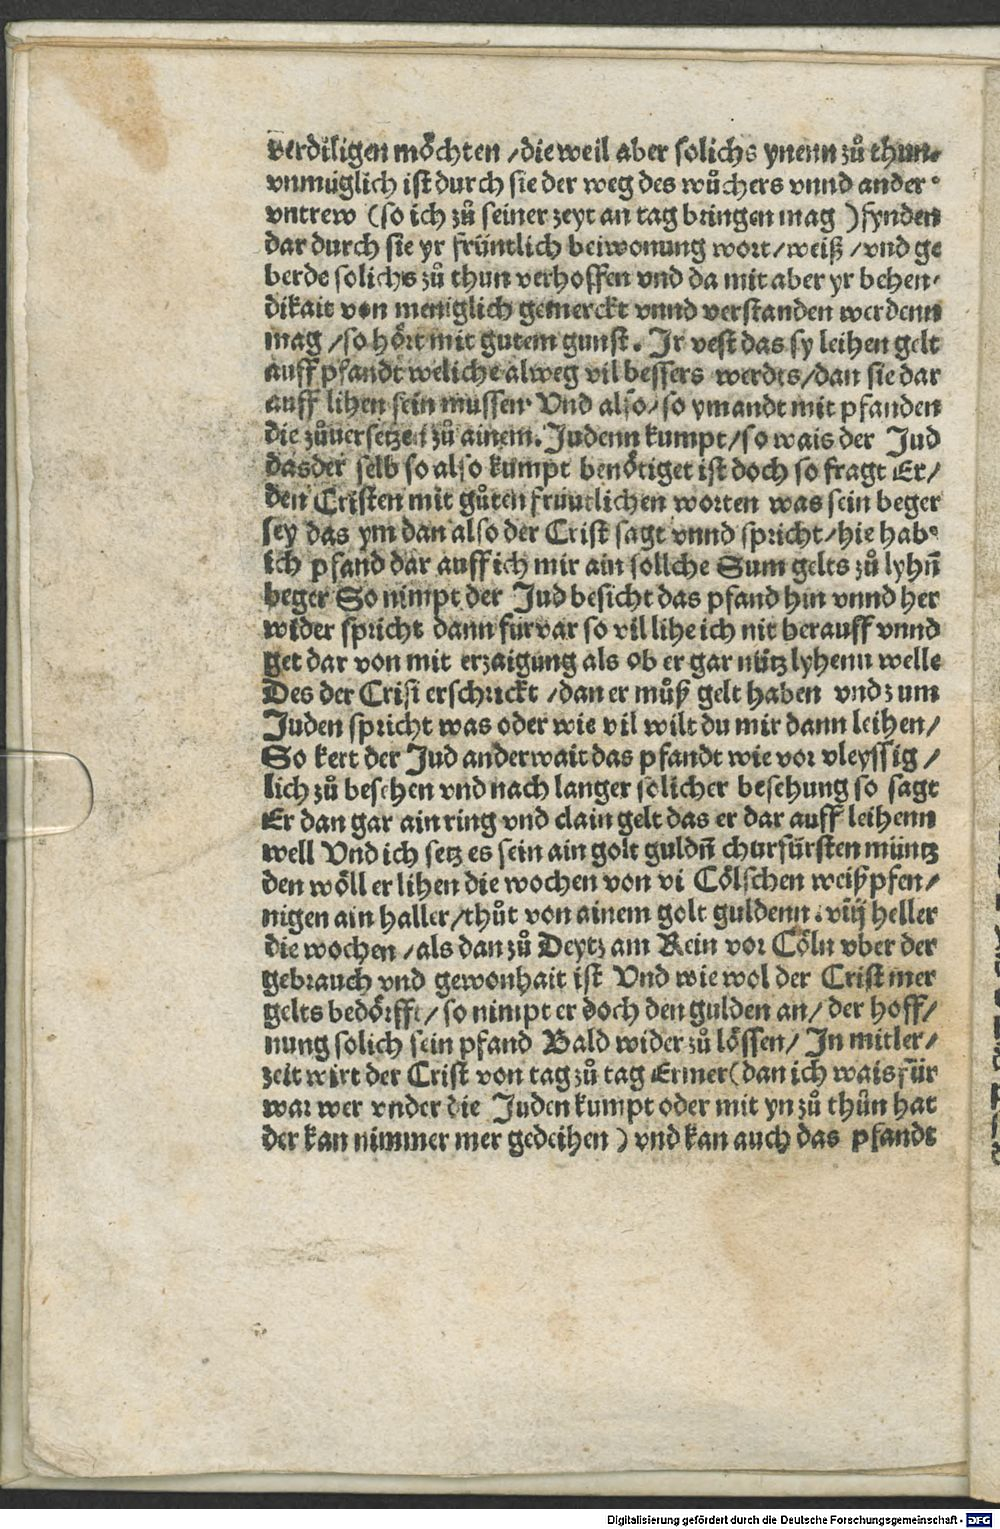 verdiligen möchten /die weil aber solichs ynenn zů thun.
vnmüglich ist durch sie der weg des wůchers vnnd ander
vntrew (so ich zů seiner zeyt an tag bringen mag ) fynden
dar durch sie yr früntlich beiwonung wort/weiß /vnd ge
berde solichs zů thun verhoffen vnd da mit aber yr behen/
dikait von meniglich gemerckt vnnd verstanden werdenn
mag /so hört mit gutem gunst. Ir vest das sy leihen gelt
auff pfandt weliche alweg vil bessers werdts/dan sie dar
auff lihen sein mussen Vnd also/so ymandt mit pfanden
die zůuersetzen zů ainem. Judenn kumpt/so wais der Jud
dasder selb so also kumpt benötiget ist doch so fragt Er/
den Cristen mit gůten fruntlichen worten was sein beger
sey das ym dan also der Crist sagt vnnd spricht/hie hab
ich pfand dar auff ich mir ain sollche Sum gelts zů lyhn̄
beger So nimpt der Jud besicht das pfand hin vnnd her
wider spricht dann furwar so vil lihe ich nit herauff vnnd
get dar von mit erzaigung als ob er gar nütz lyhenn welle
Des der Crist erschrickt /dan er můß gelt haben vnd zum
Juden spricht was oder wie vil wilt du mir dann leihen/
So kert der Jud anderwait das pfandt wie vor vleyssig /
lich zů besehen vnd nach langer solicher besehung so sagt
Er dan gar ain ring vnd clain gelt das er dar auff leihenn
well Vnd ich setz es sein ain golt guldn̄ churfürsten müntz
den wöll er lihen die wochen von vi Cölschen weißpfen/
nigen ain haller/thůt von ainem golt guldenn. viij heller
die wochen /als dan zů Deytz am Rein vor Cöln vber der
gebrauch vnd gewonhait ist Vnd wie wol der Crist mer
gelts bedörfft/ so nimpt er doch den gulden an/ der hoff/
nung solich sein pfand Bald wider zů lössen/ In mitler/
zeit wirt der Crist von tag zů tag Ermer(dan ich wais für
war wer vnder die Juden kumpt oder mit yn zů thůn hat
der kan nimmer mer gedeihen ) vnd kan auch das pfandt
Digitalisierung gefördert durch die Deutsche Forschungsgemeinschaft - DFG